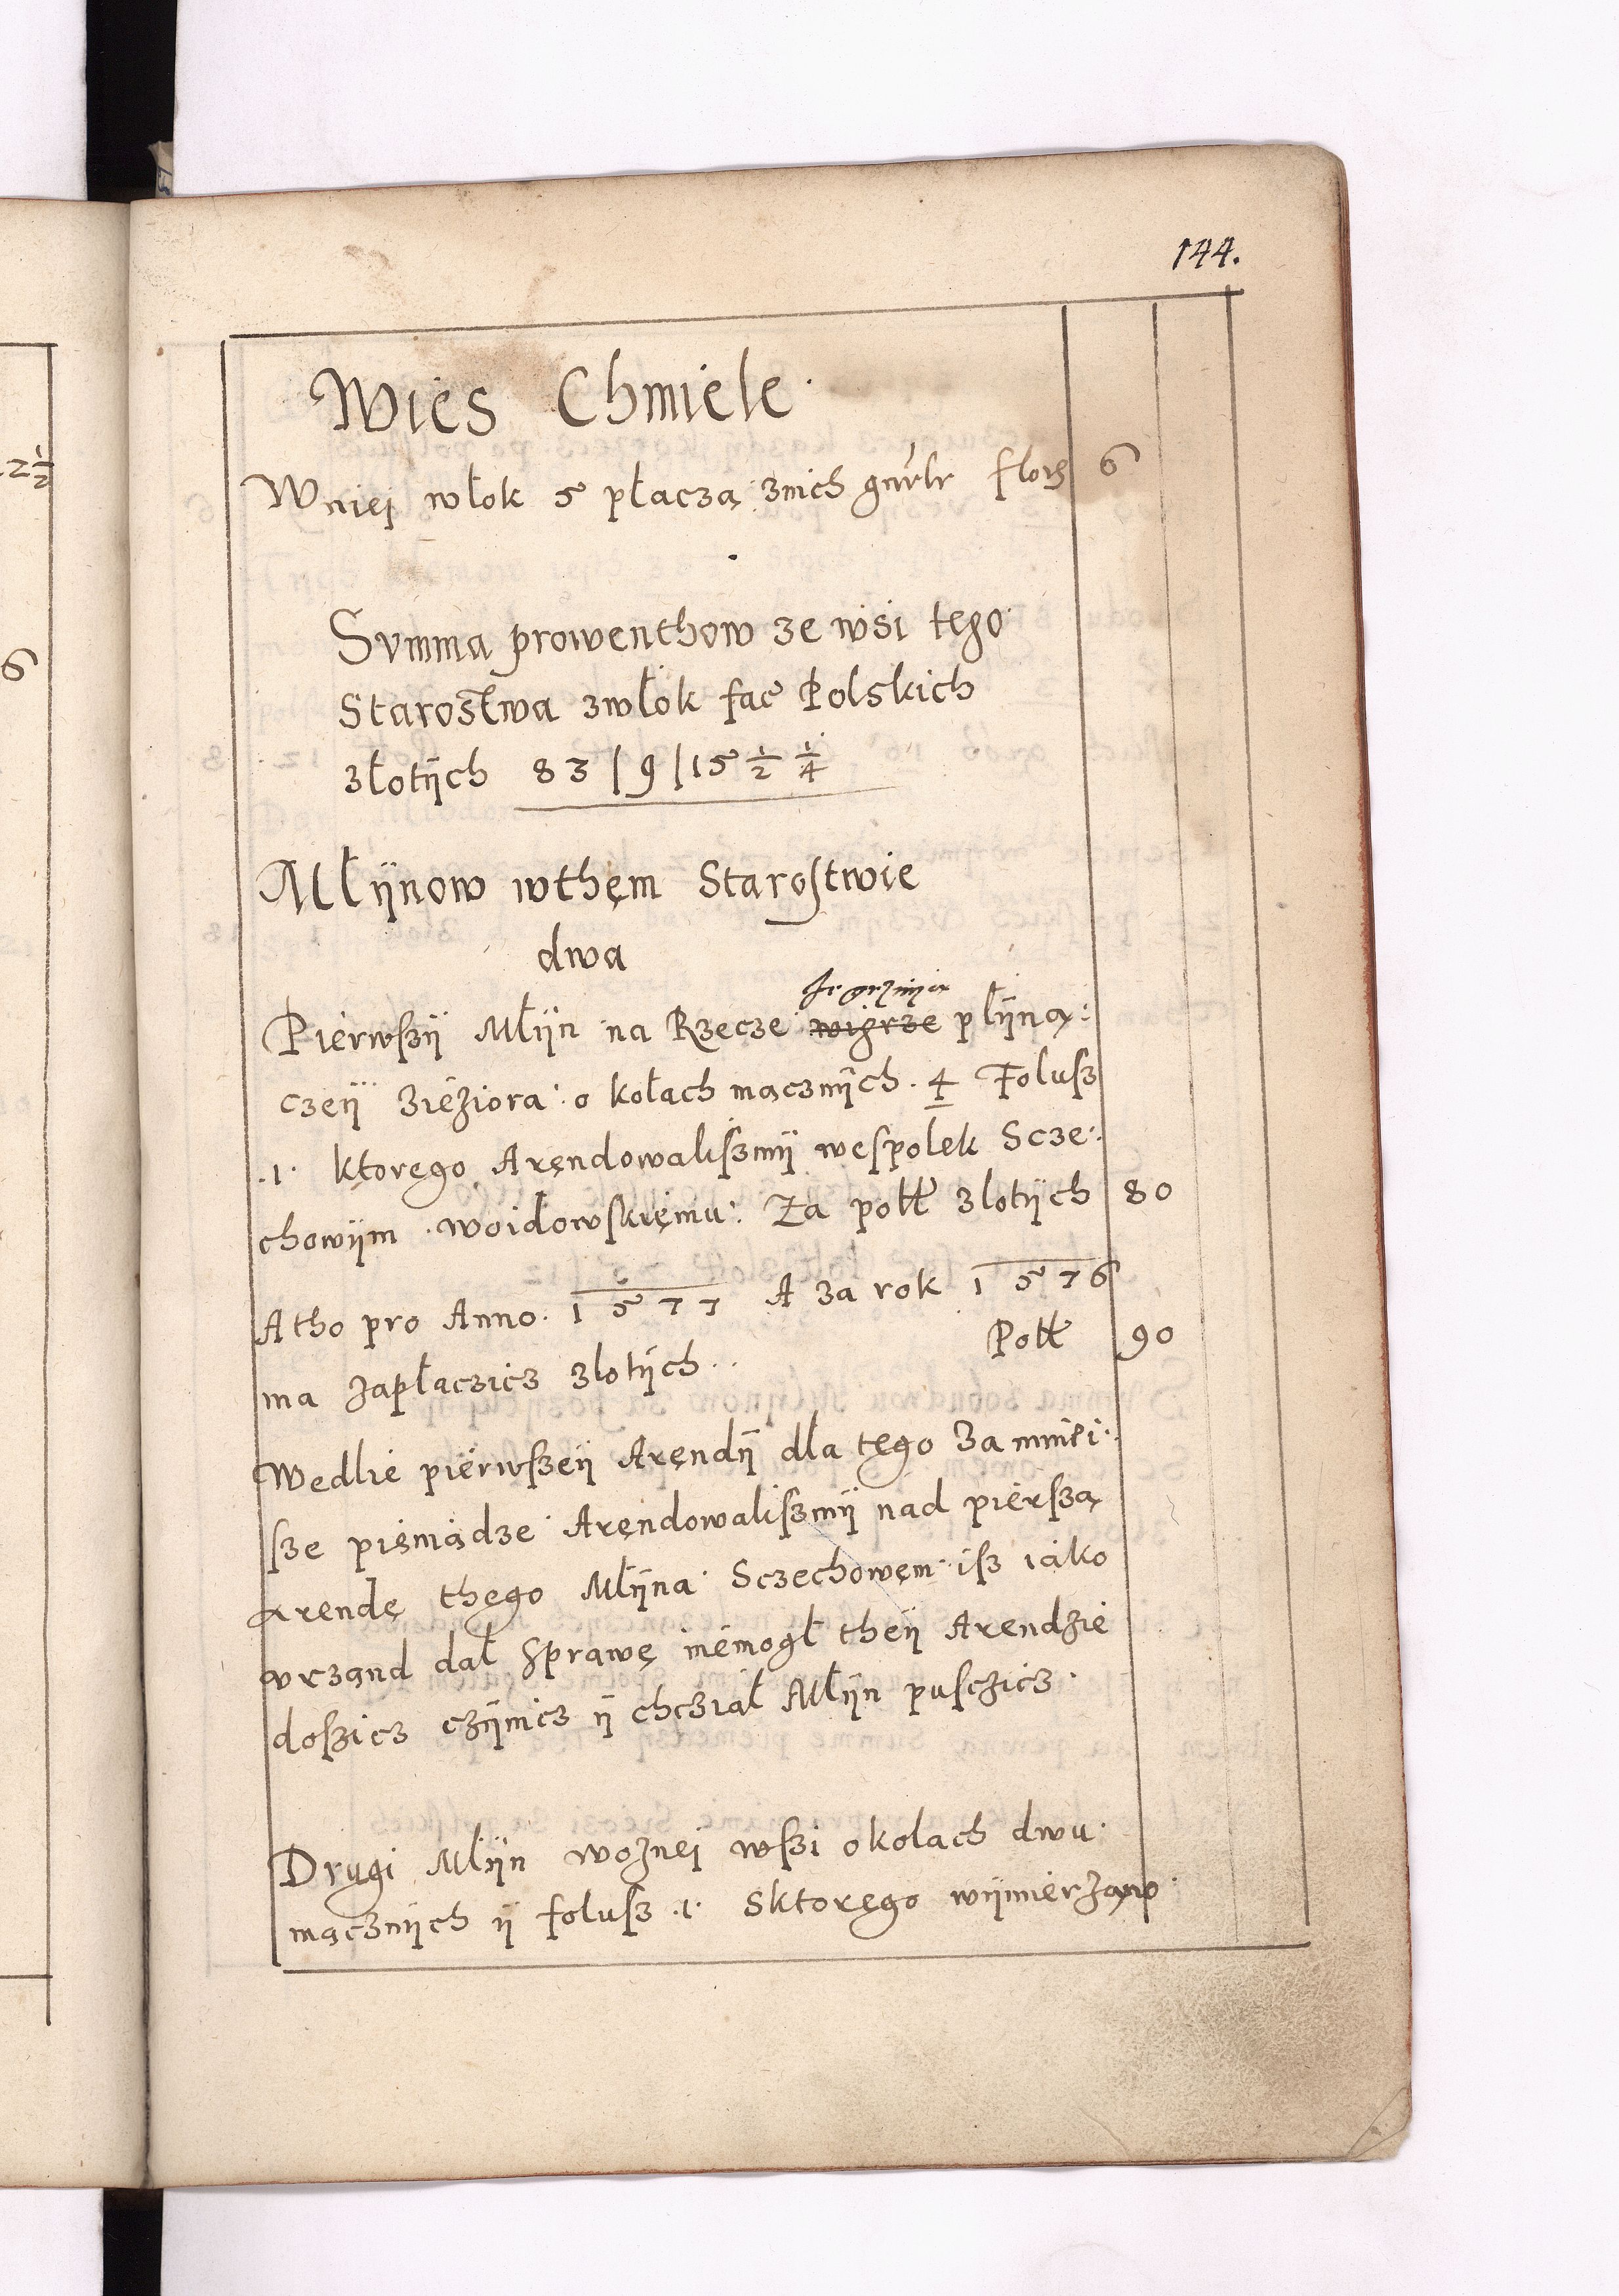 144.
Wies Chmiele
W niej włok 5 płaczą znich flor 6
Summa prowenthow ze wsi tego
Starostwa zwłok fac Polskich
złotÿch 83 | 9 | 15 1/2 1/4
Młÿnow wthęm Starostwie
dwa
Pierwszÿ Młÿn na Rzecze wigrze płÿną:
czeÿ zieziora: o kołach mącznÿch. 4 Folusz
.1. ktorego Aręndowaliszmÿ wespolek Scze:
chowÿm woidowskięmu: Za poll zlotÿch 80
Atho pro Anno. 1577 A za rok 1576
ma zapłaczicz zlotÿch.. Poll 90
Wedlie pierwszeÿ Aręndÿ dla tęgo za mniei:
sze pieniądze Aręndowaliszmÿ nad pierszą
arendę thęgo Młÿna Sczechowęm isz iako
vrzand dał Sprawę niemogł theÿ Arendzie
doszicz czÿnicz ÿ chcział Młÿn pusczicz.
Drugi Młÿn woznej wszi o kolach dwu
mącznÿch ÿ folusz .1. Sktoręgo wÿmierzano
2 1/2
6